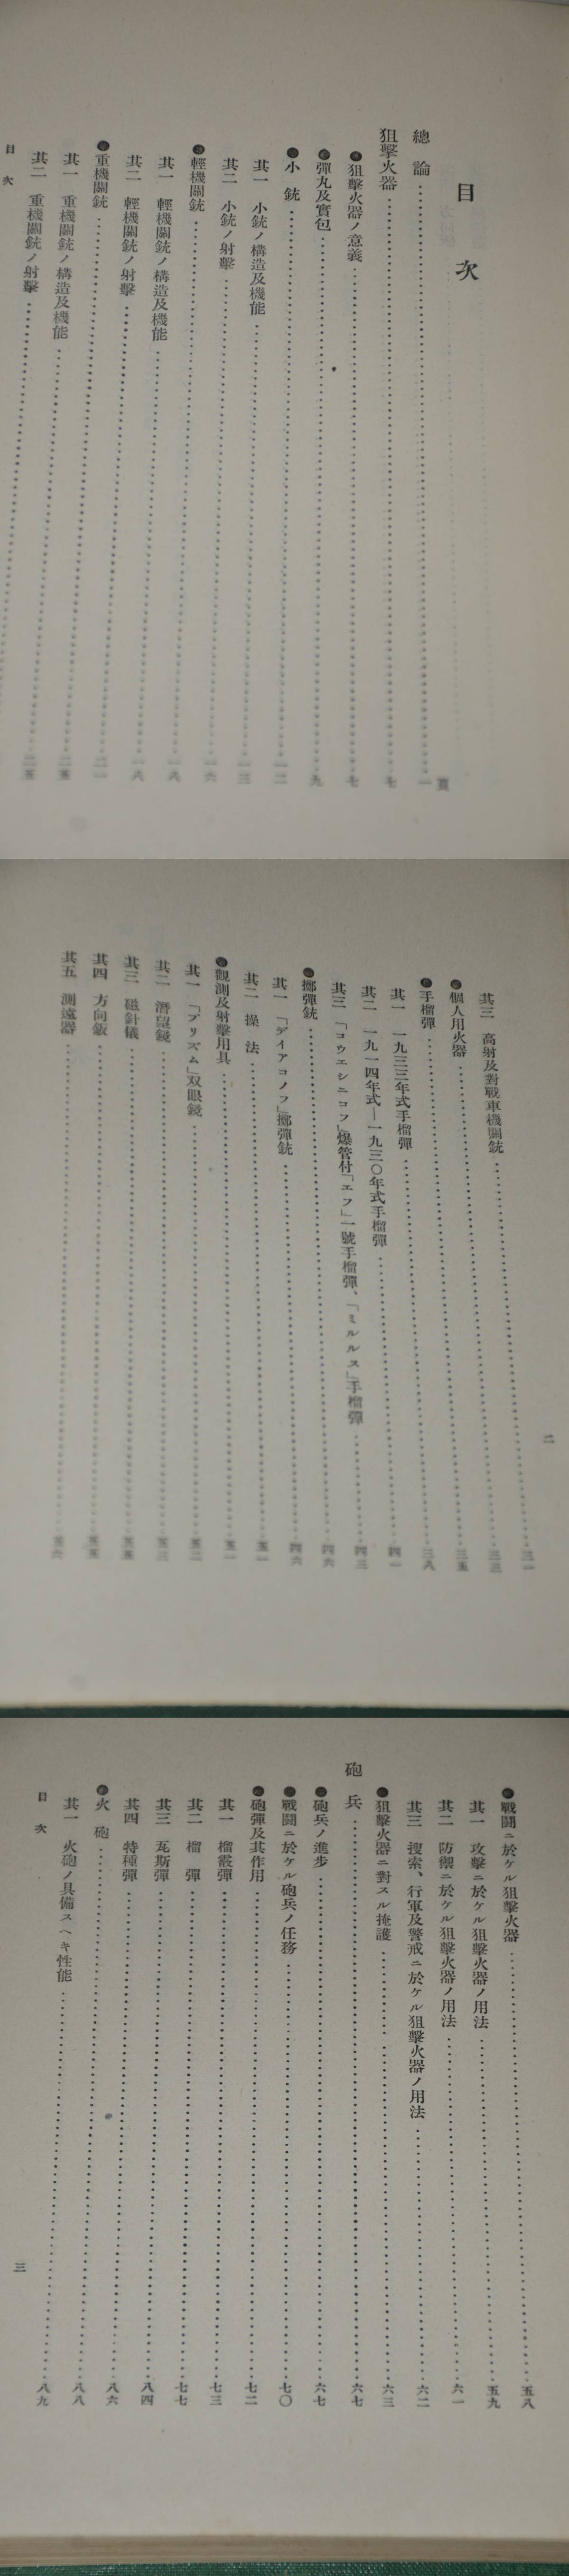 目次
頁
總論……一
狙擊火器……七
●狙擊火器ノ意義……七
●彈丸及實包……九
●小銃……一二
其一 小銃ノ構造及機能……一三
其二 小銃ノ射擊……一六
●輕機關銃……一八
其一 輕機關銃ノ構造及機能……一八
其二 輕機關銃ノ射擊……二一
●重機關銃……二五
其一 重機關銃ノ構造及機能……二五
其二 重機關銃ノ射擊……
目次
二
三一
其三 高射及對戰車機關銃……三三
●個人用火器……三五
●手榴彈……三八
其一 一九三三年式手榴彈……四一
其二 一九一四年式—一九三〇年式手榴彈……四三
其三 「コウエシニコフ」爆管付「エフ」一號手榴彈、「ミルルス」手榴彈……四六
●擲彈銃……四六
其一 「デイアコノフ」擲彈銃……五一
其二 操法……五一
●觀測及射擊用具……五二
其一 「プリズム」双眼鏡……五三
其二 潛望鏡……五五
其三 磁針儀……五五
其四 方向鈑……五六
其五 測遠器
●戰鬪ニ於ケル狙擊火器……五八
其一 攻擊ニ於ケル狙擊火器ノ用法……五九
其二 防禦ニ於ケル狙擊火器ノ用法……六一
其三 搜索、行軍及警戒ニ於ケル狙擊火器ノ用法……六二
●狙擊火器ニ對スル掩護……六三
砲兵……六七
●砲兵ノ進步……六七
●戰鬪ニ於ケル砲兵ノ任務……七〇
●砲彈及其作用……七二
其一 榴霰彈……七三
其二 榴彈……七七
其三 瓦斯彈……八四
其四 特種彈……八六
●火砲……八八
其一 火砲ノ具備スヘキ性能……八九
目次
三